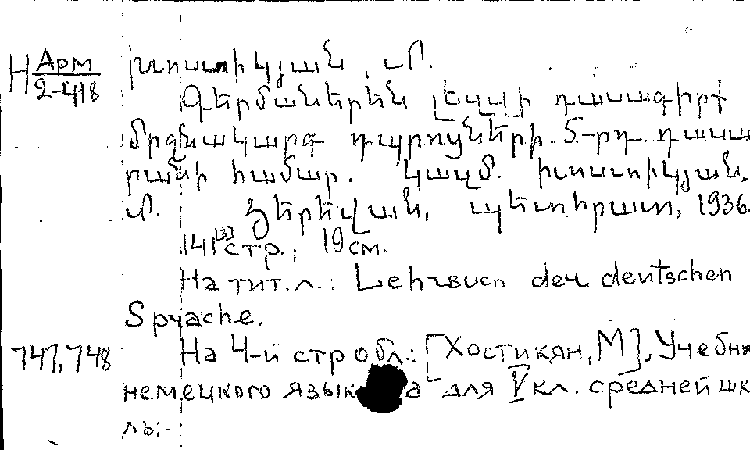 Н Арм
2-418
Խոստիկյան, Մ.
Գերմաներեն լեզվի դասագիրք
միջնակարգ դպրոցների 5-րդ դասա
րանի համար. Կազմ. Խոստիկյան,
Մ. Յերեվան, Պետհրատ, 1936.
141 стр.; 19 см.
На тит. л.: Lehrbuch der deutschen
Sprache.
747, 748 На 4-й стр обл.: [Хостикян, М], Учебни
немецкого языка для V кл. средней шк
лы.-